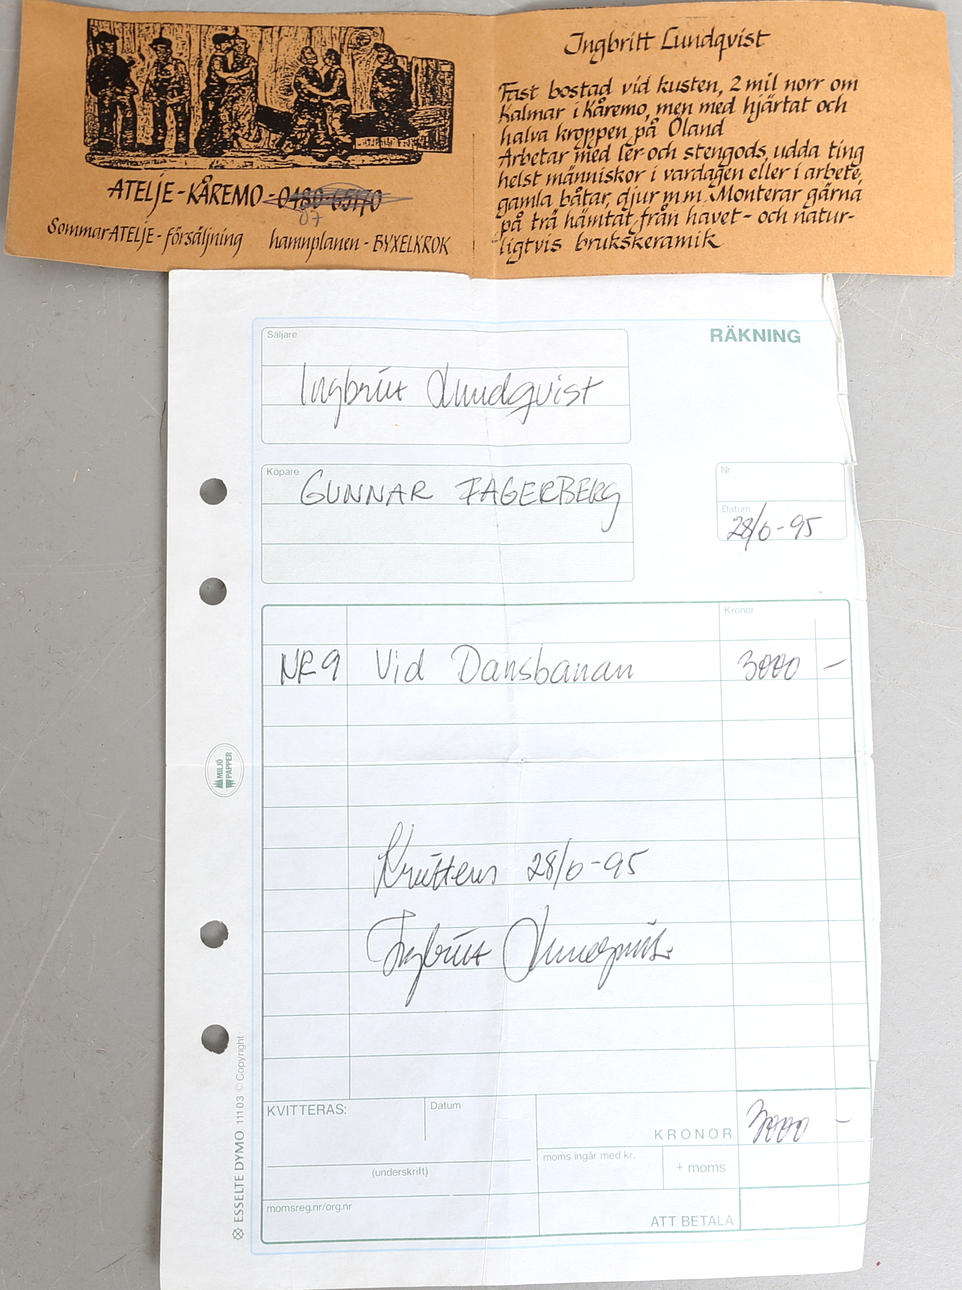 ATELJE-KÅREMO-0480-65170
07
SommarATELJE-försäljning hamnplanen-BYXELKROK
Ingbritt Lundqvist
Fast bostad vid kusten, 2 mil norr om
Kalmar i Kåremo, men med hjärtat och
halva kroppen på Öland
Arbetar med ler och stengods, udda ting
helst människor i vardagen eller i arbete,
gamla båtar, djur m.m. Monterar gärna
på trä hämtat från havet - och natur-
ligtvis brukskeramik
RÄKNING
Säljare
Ingbritt Lundqvist
Köpare
GUNNAR FAGERBERG
Nr
Datum
28/6-95
Kronor
NR 9 Vid Dansbanan 3000 -
MILJÖ
PAPPER
28/6-95
Ingbritt Lundqvist
KVITTERAS:
Datum
KRONOR 3000 -
(underskrift)
moms ingår med kr.
+ moms
momsreg.nr/org.nr
ATT BETALA
ESSELTE DYMO 11103 © Copyright